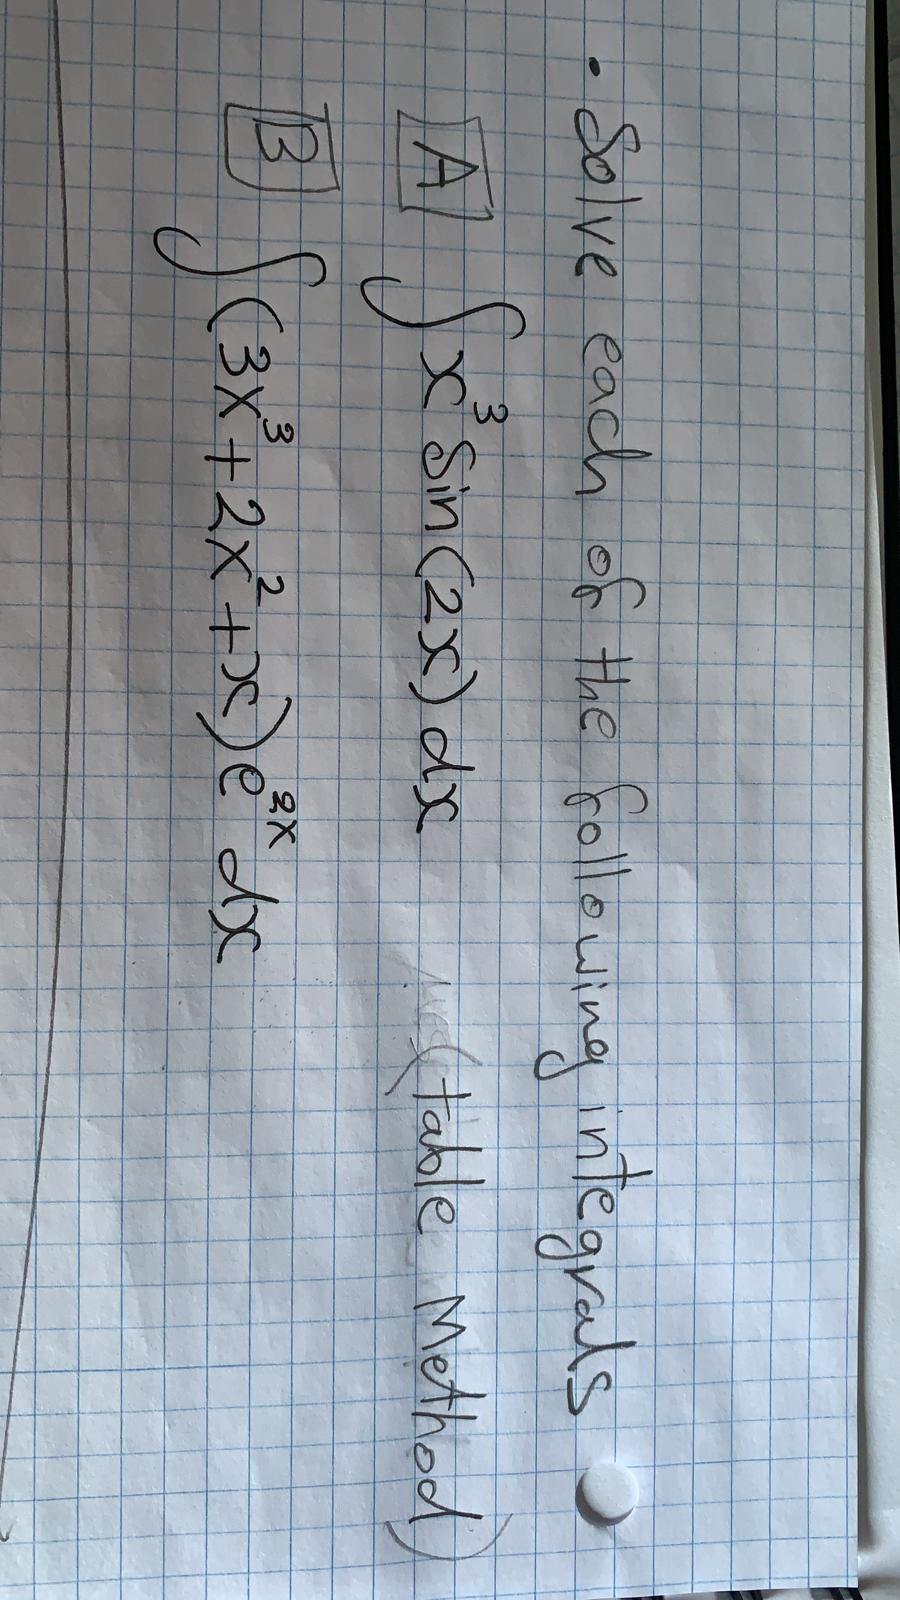 • Solve each of the following integrals
A ∫ x³ Sin(2x) dx (table Method)
B ∫ (3x³ + 2x² + x) e²ˣ dx